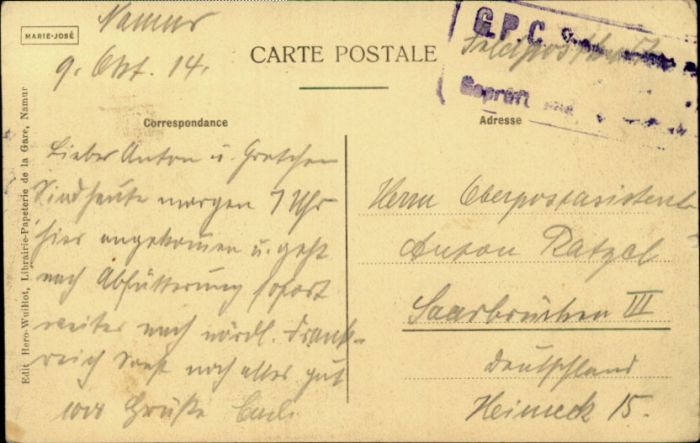 MARIE-JOSÉ
Namur
9. Okt. 14.
CARTE POSTALE
G.P.C.
Feldpostkarte
Geprüft
Correspondance
Adresse
Lieber Anton u. Gretchen
Sind heute morgen 7 Uhr
hier angekommen u. geht
nach Abfütterung sofort
weiter nach nördl. Frank-
reich Sonst noch alles gut
1000 Grüße Carl.
Herrn Oberpostassistent
Anton Ratzel
Saarbrücken III
Deutschland
Heimeck 15.
Edit Hero-Wuillot, Librairie-Papeterie de la Gare, Namur